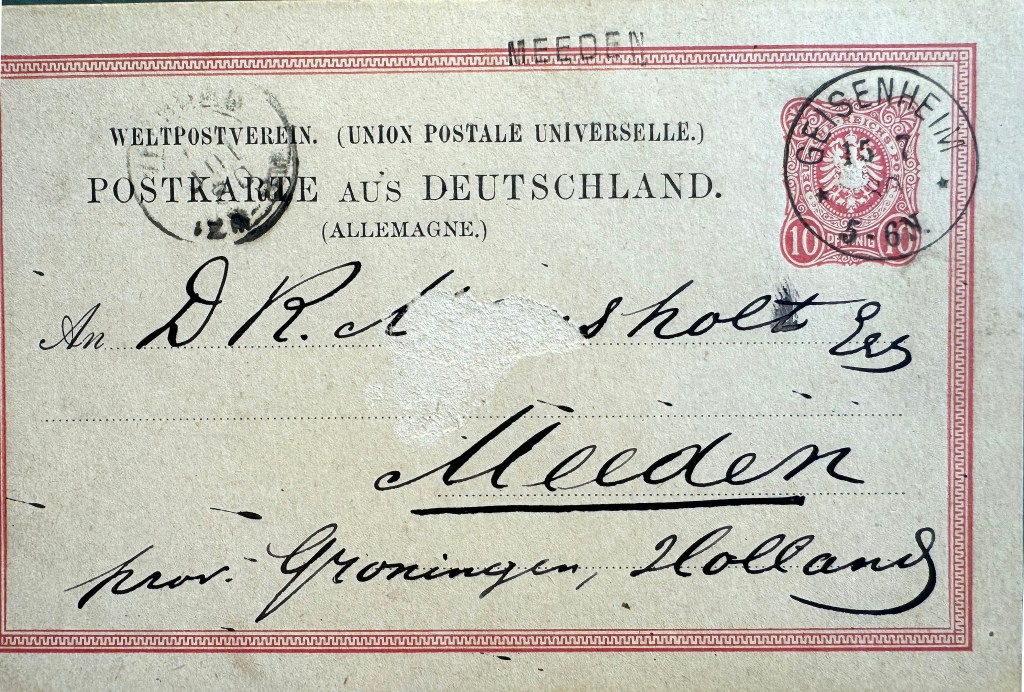 MEEDEN
WELTPOSTVEREIN. (UNION POSTALE UNIVERSELLE.)
POSTKARTE AUS DEUTSCHLAND.
(ALLEMAGNE.)
GEISENHEIM
15 7
5-6N.
10 PFENNIG 10
An D R. M sholt Esq
Meeden
prov. Groningen, Holland